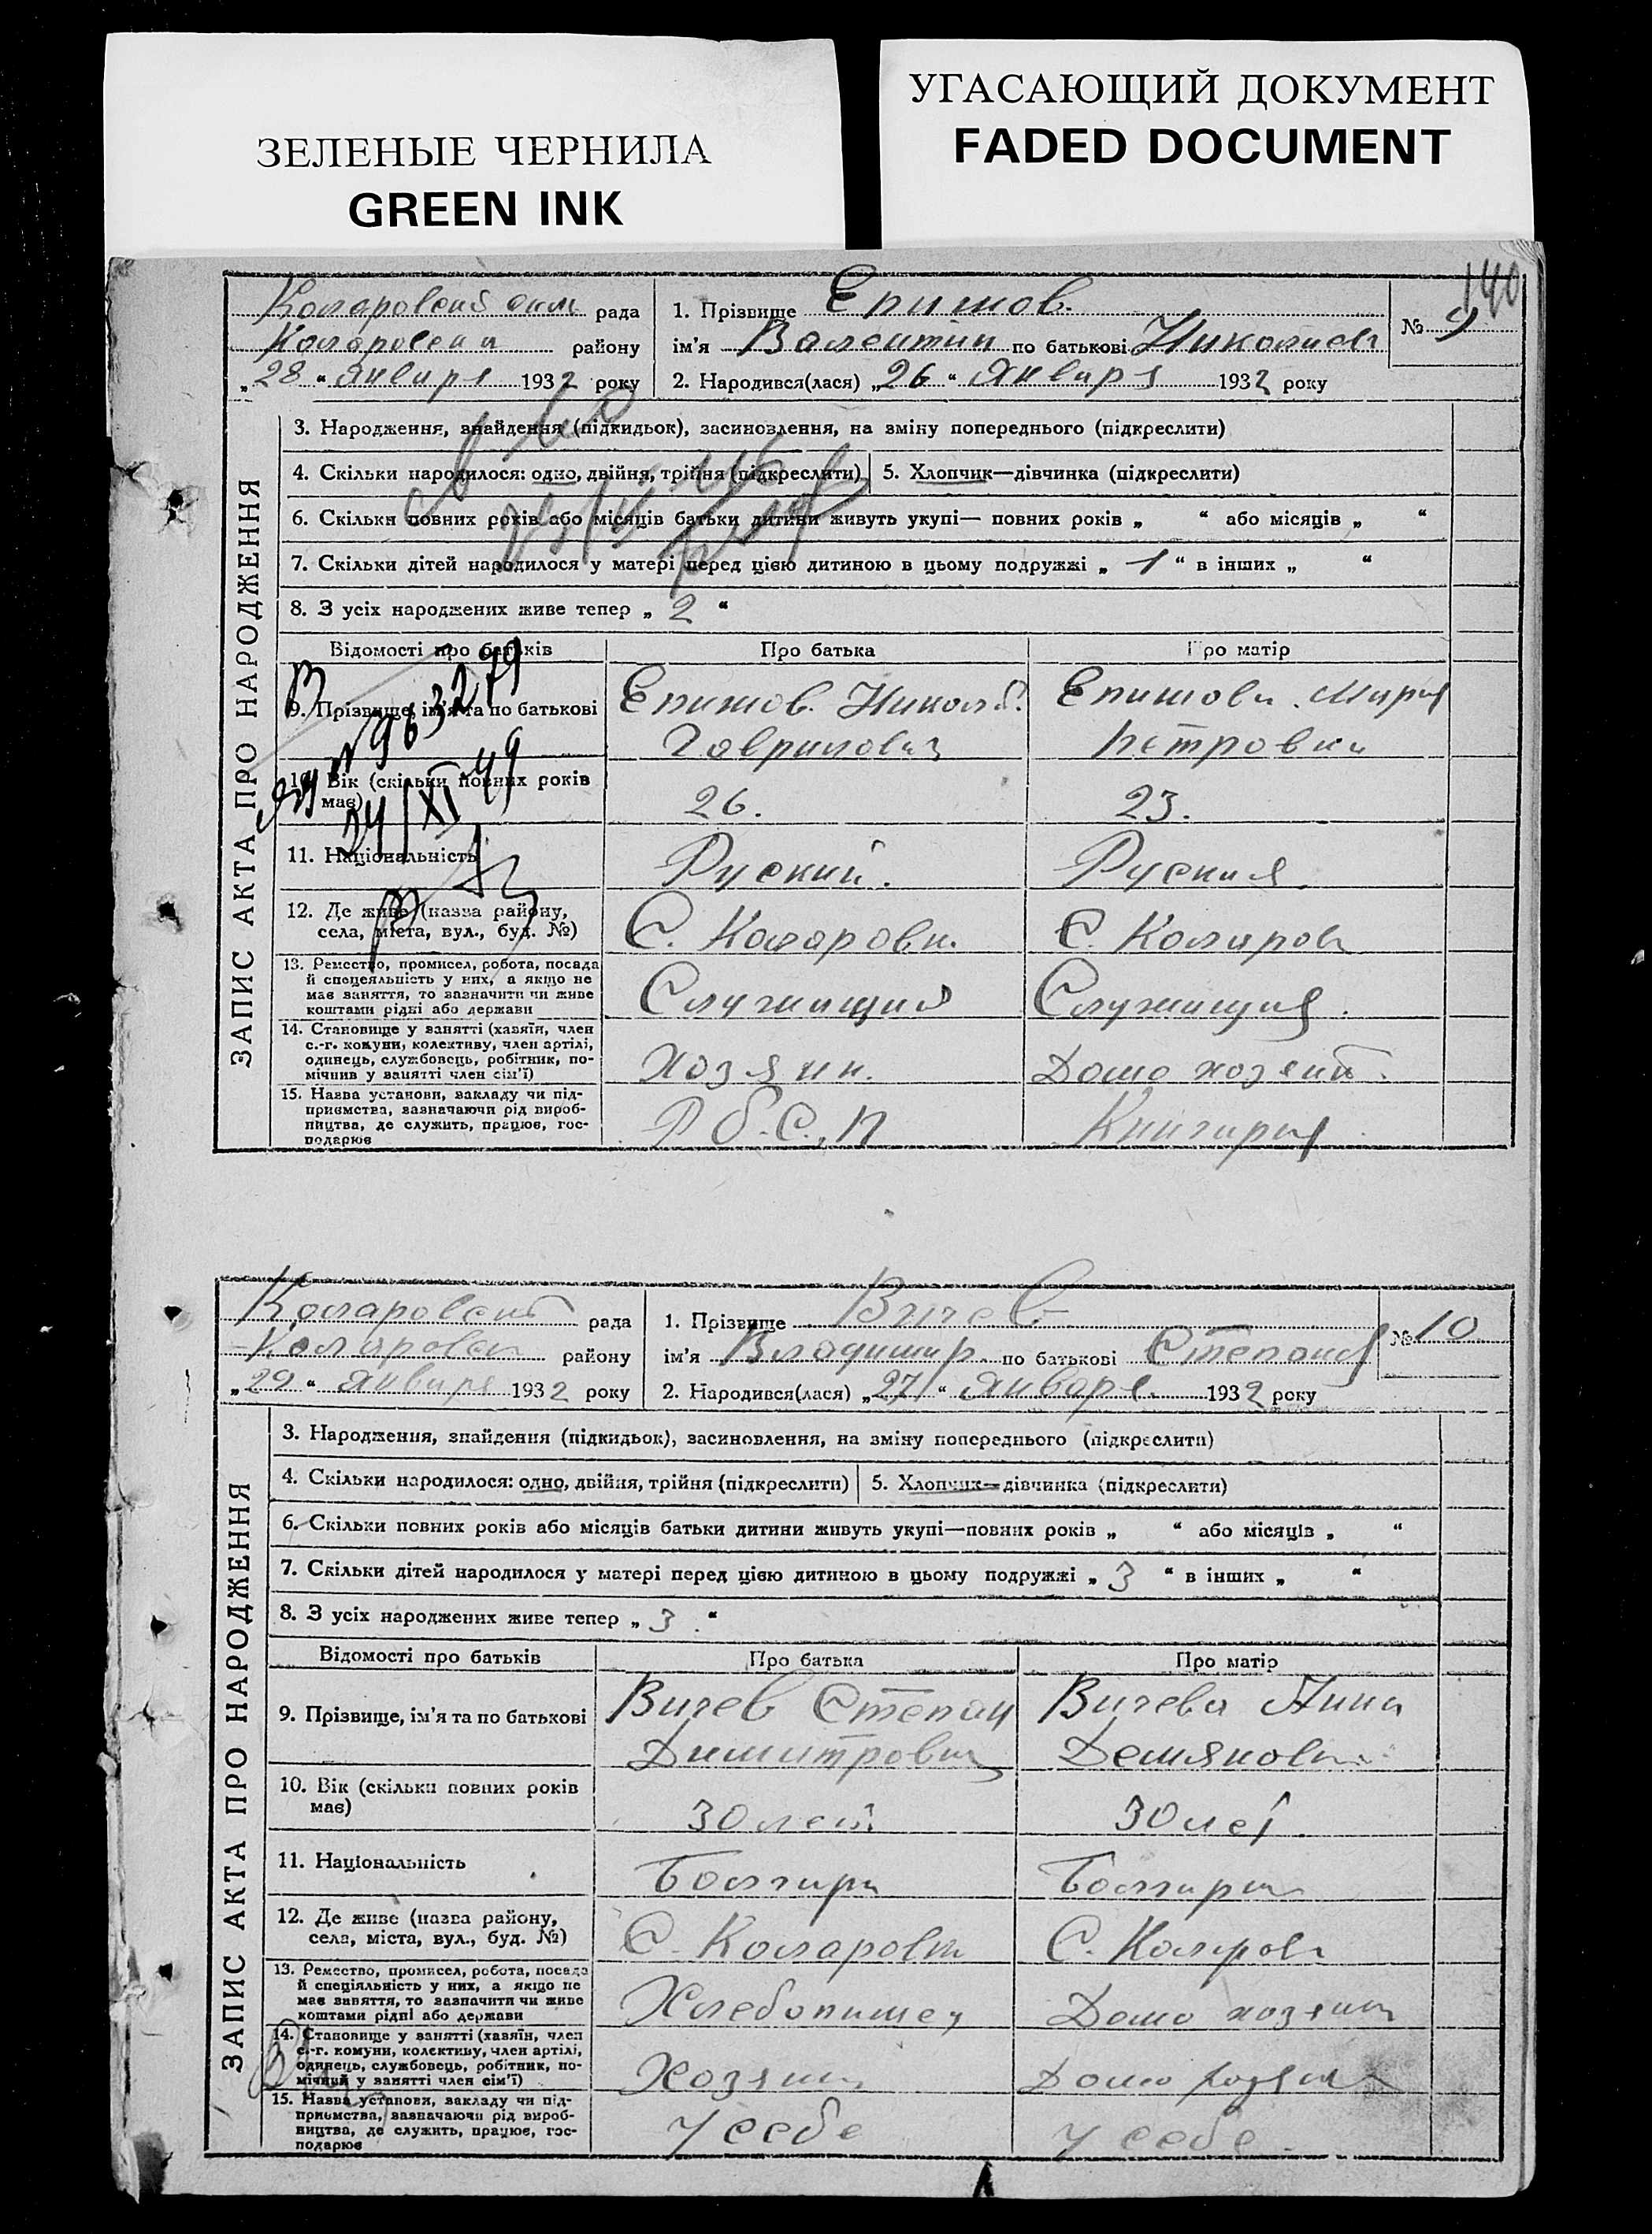 ЗЕЛЕНЫЕ ЧЕРНИЛА
GREEN INK
УГАСАЮЩИЙ ДОКУМЕНТ
FADED DOCUMENT
140
Коларовский рада
района району
„28“ Января 1932 року
1. Прізвище Епишов.
ім'я Валентин по батькові Николаев
2. Народився(лася) „26“ Января 1932 року
№ 9
ЗАПИС АКТА ПРО НАРОДЖЕННЯ
3. Народження, знайдення (підкидьок), засиновлення, на зміну попереднього (підкреслити)
4. Скільки народилося: одно, двійня, трійня (підкреслити) 5. Хлопчик—дівчинка (підкреслити)
6. Скільки повних років або місяців батьки дитини живуть укупі— повних років „ “ або місяців „ “
7. Скільки дітей народилося у матері перед цією дитиною в цьому подружжі „ 1 “ в інших „ “
8. З усіх народжених живе тепер „ 2 “
Відомості про батьків Про батька Про матір
9. Прізвище, ім'я та по батькові Епишов. Никол. Епишова. Мария
Гаврилович Петровна
№ 963279
10. Вік (скільки повних років має) 26. 23.
24/XI 49
11. Національність Руский. Руская.
12. Де живе (назва району, села, міста, вул., буд. №) С. Коларовка. С. Коларов
13. Ремество, промисел, робота, посада й спецеяльність у них, а якщо не має заняття, то зазначити чи живе коштами рідні або держави Служищия Служищия.
14. Становище у занятті (хазяїн, член с.-г. комуни, колективу, член артілі, одинець, службовець, робітник, помічнив у занятті член сім'ї) Хозяин. Домо хозяит.
15. Назва установи, закладу чи підприємства, зазначаючи рід виробництва, де служить, працює, господарює Р б. С., П Книгария
Коларовский рада
Коларовск району
„29“ Января 1932 року
1. Прізвище Вичев
ім'я Владимир. по батькові Степанов
2. Народився(лася) „27“ Января 1932 року
№ 10
ЗАПИС АКТА ПРО НАРОДЖЕННЯ
3. Народження, знайдення (підкидьок), засиновлення, на зміну попереднього (підкреслити)
4. Скільки народилося: одно, двійня, трійня (підкреслити) 5. Хлопчик—дівчинка (підкреслити)
6. Скільки повних років або місяців батьки дитини живуть укупі—повних років „ “ або місяців „ “
7. Скільки дітей народилося у матері перед цією дитиною в цьому подружжі „ 3 “ в інших „ “
8. З усіх народжених живе тепер „ 3 “
Відомості про батьків Про батька Про матір
9. Прізвище, ім'я та по батькові Вичев Степан Вичева Анна
Димитрович Демяновна
10. Вік (скільки повних років має) 30 лет 30 лет.
11. Національність Болгари Болгарка
12. Де живе (назва району, села, міста, вул., буд. №) С. Коларовка С. Коларов
13. Ремество, промисел, робота, посада й спеціяльність у них, а якщо не має заняття, то зазначити чи живе коштами рідні або держави Хлебопашец Домо хозяит
14. Становище у занятті (хазяїн, член с.-г. комуни, колективу, член артілі, одинець, службовець, робітник, помічний у занятті член сім'ї) Хозяин Домо хозяит
15. Назва установи, закладу чи підприємства, зазначаючи рід виробництва, де служить, працює, господарює у себе у себе.